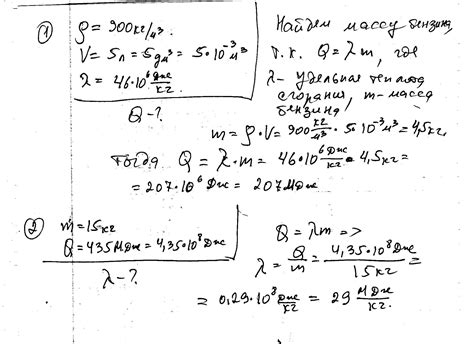 ① ρ = 900 кг/м³.
V = 5л = 5дм³ = 5·10⁻³м³
λ = 46·10⁶ Дж/кг.
Q - ?
Найдем массу бензина,
т.к. Q = λm, где
λ - удельная теплота
сгорания, m - масса
бензина,
m = ρ·V = 900 кг/м³ · 5·10⁻³м³ = 4,5кг.
тогда Q = λ·m = 46·10⁶ Дж/кг · 4,5кг =
= 207·10⁶ Дж = 207 МДж
② m = 15 кг
Q = 435 МДж = 4,35·10⁸ Дж
λ - ?
Q = λm =>
λ = Q/m = 4,35·10⁸ Дж / 15 кг =
= 0,29·10⁸ Дж/кг = 29 МДж/кг.